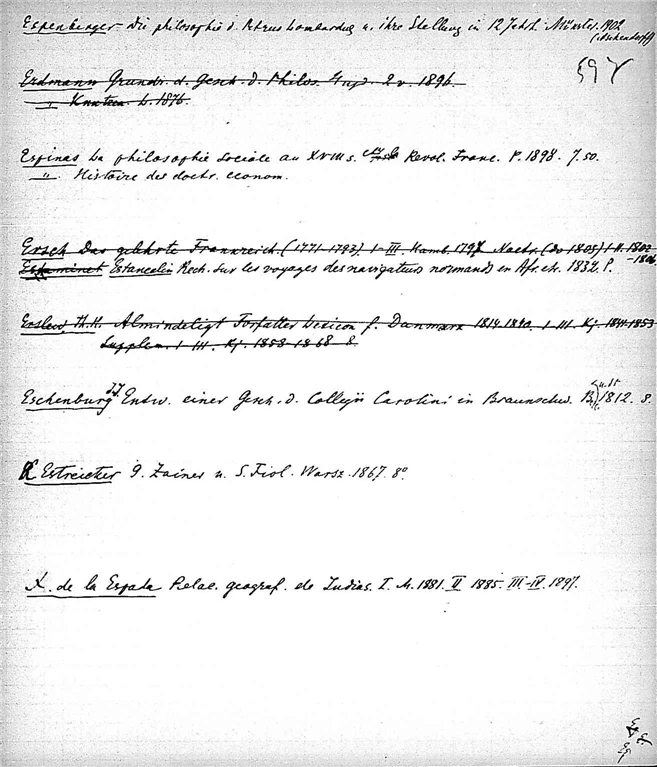 Espenberger Die philosophie d. Petrus Lombardus u. ihre Stellung in 12 Jahrh. Münster. 1902
(Aschendorff)
59
Erdmann Grundr. d. Gesch. d. Philos. 4 2 v. 1896.
" L. 1876.
Espinas La philosophie sociale au XVIII s. et la Revol. Franc. P. 1898. 7.50.
" Histoire des doctr. econom.
Ersch Das gelehrte Frankreich. (1771-1793) I-III. Hamb. 1797 Nachtr. (do 1805) I-II. 1802
-1806
Estancelin Rech. sur les voyages des navigateurs normands en Afr. etc. 1832. P.
Erslew, Th. H. Almindeligt Forfatter Lexicon f. Danmark 1814-1840. I-III. Kj. 1841-1853
Supplem. I-III. Kj. 1858-1868 8.
Eschenburg Entw. einer Gesch. d. Collegii Carolini in Braunschw. 1812. 8.
Estreicher G. Zainer u. S. Fiol. Warsz. 1867. 8°.
X. de la Espada Relac. geograf. de Indias. I. M. 1881. II 1885. III-IV. 1897.